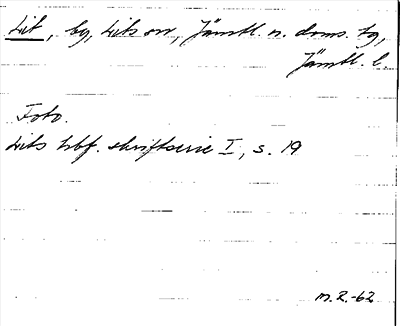 Lit, by, Lits sn, Jämtl. n. doms. tg,
Jämtl. l.
Foto.
Lits hbf. skriftserie I, s. 19
M.R.-62